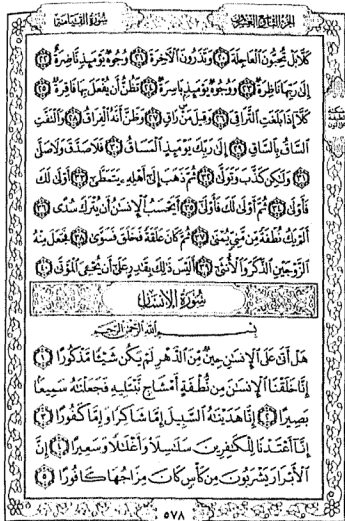 سُورَةُ القِيَامَةِ الجزء التاسع والعشرون
كَلَّا بَلْ تُحِبُّونَ ٱلْعَاجِلَةَ ٢٠ وَتَذَرُونَ ٱلْآخِرَةَ ٢١ وُجُوهٌ يَوْمَئِذٍ نَّاضِرَةٌ ٢٢
إِلَىٰ رَبِّهَا نَاظِرَةٌ ٢٣ وَوُجُوهٌ يَوْمَئِذٍ بَاسِرَةٌ ٢٤ تَظُنُّ أَن يُفْعَلَ بِهَا فَاقِرَةٌ ٢٥
كَلَّا إِذَا بَلَغَتِ ٱلتَّرَاقِيَ ٢٦ وَقِيلَ مَنْ رَاقٍ ٢٧ وَظَنَّ أَنَّهُ ٱلْفِرَاقُ ٢٨ وَٱلْتَفَّتِ
ٱلسَّاقُ بِٱلسَّاقِ ٢٩ إِلَىٰ رَبِّكَ يَوْمَئِذٍ ٱلْمَسَاقُ ٣٠ فَلَا صَدَّقَ وَلَا صَلَّىٰ
٣١ وَلَٰكِن كَذَّبَ وَتَوَلَّىٰ ٣٢ ثُمَّ ذَهَبَ إِلَىٰ أَهْلِهِ يَتَمَطَّىٰ ٣٣ أَوْلَىٰ لَكَ
فَأَوْلَىٰ ٣٤ ثُمَّ أَوْلَىٰ لَكَ فَأَوْلَىٰ ٣٥ أَيَحْسَبُ ٱلْإِنسَٰنُ أَن يُتْرَكَ سُدًى ٣٦
أَلَمْ يَكُ نُطْفَةً مِّن مَّنِيٍّ يُمْنَىٰ ٣٧ ثُمَّ كَانَ عَلَقَةً فَخَلَقَ فَسَوَّىٰ ٣٨ فَجَعَلَ مِنْهُ
ٱلزَّوْجَيْنِ ٱلذَّكَرَ وَٱلْأُنثَىٰ ٣٩ أَلَيْسَ ذَٰلِكَ بِقَٰدِرٍ عَلَىٰ أَن يُحْيِيَ ٱلْمَوْتَىٰ ٤٠
سُورَةُ الإِنسَان
بِسْمِ ٱللَّهِ ٱلرَّحْمَٰنِ ٱلرَّحِيمِ
هَلْ أَتَىٰ عَلَى ٱلْإِنسَٰنِ حِينٌ مِّنَ ٱلدَّهْرِ لَمْ يَكُن شَيْئًا مَّذْكُورًا ١
إِنَّا خَلَقْنَا ٱلْإِنسَٰنَ مِن نُّطْفَةٍ أَمْشَاجٍ نَّبْتَلِيهِ فَجَعَلْنَٰهُ سَمِيعًا
بَصِيرًا ٢ إِنَّا هَدَيْنَٰهُ ٱلسَّبِيلَ إِمَّا شَاكِرًا وَإِمَّا كَفُورًا ٣
إِنَّا أَعْتَدْنَا لِلْكَٰفِرِينَ سَلَٰسِلَا۟ وَأَغْلَٰلًا وَسَعِيرًا ٤ إِنَّ
ٱلْأَبْرَارَ يَشْرَبُونَ مِن كَأْسٍ كَانَ مِزَاجُهَا كَافُورًا ٥
٥٧٨